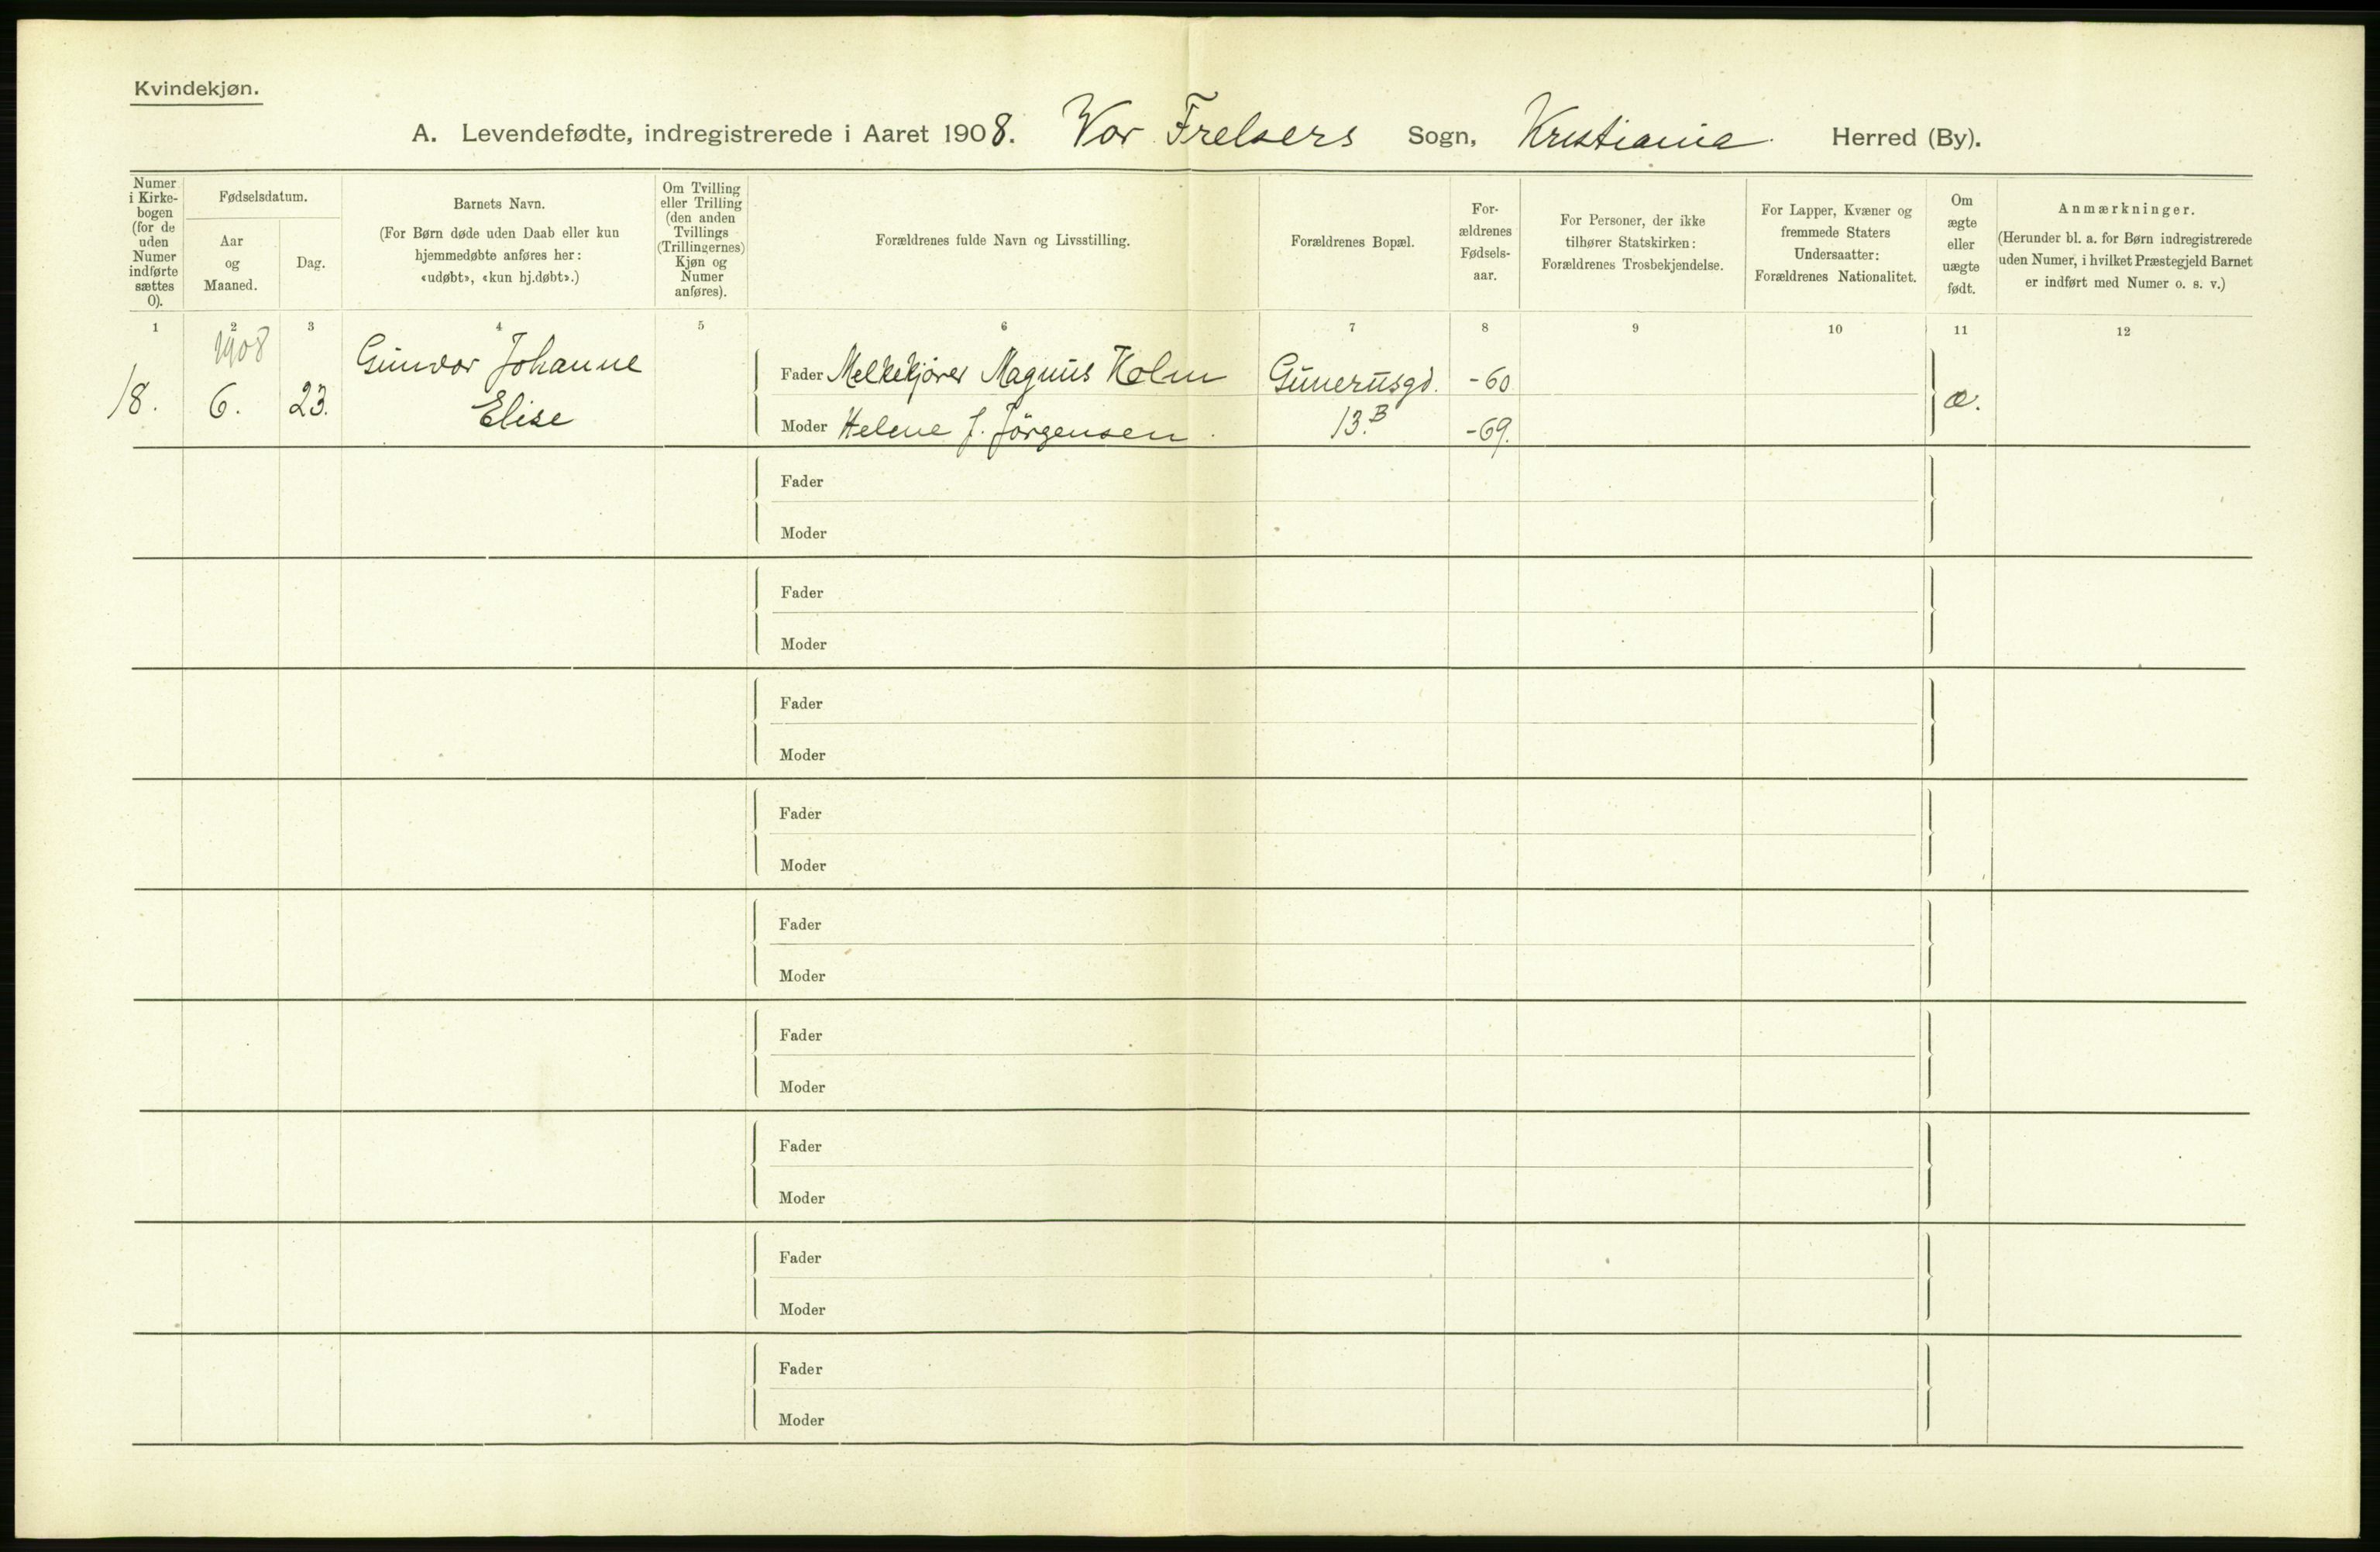 Kvindekjøn.
A. Levendefødte, indregistrerede i Aaret 1908. Vor Frelsers Sogn, Kristiania Herred (By).
Numer i Kirke-bogen (for de uden Numer indførte sættes 0).
Fødselsdatum.
Aar og Maaned.
Dag.
Barnets Navn.
(For Børn døde uden Daab eller kun
hjemmedøbte anføres her:
«udøbt», «kun hj.døbt».)
Om Tvilling
eller Trilling
(den anden
Tvillings
(Trillingernes)
Kjøn og
Numer
anføres).
Forældrenes fulde Navn og Livsstilling.
Forældrenes Bopæl.
For-
ældrenes
Fødsels-
aar.
For Personer, der ikke
tilhører Statskirken:
Forældrenes Trosbekjendelse.
For Lapper, Kvæner og
fremmede Staters
Undersaatter:
Forældrenes Nationalitet.
Om
ægte
eller
uægte
født.
Anmærkninger.
(Herunder bl. a. for Børn indregistrerede
uden Numer, i hvilket Præstegjeld Barnet
er indført med Numer o. s. v.)
1 2 3 4 5 6 7 8 9 10 11 12
1908
18. 6. 23. Gunvor Johanne
Elise
Fader Melkekjører Magnus Holm Gunerusgd. -60
Moder Helene J. Jörgensen. 13.B -69.
æ.
Fader
Moder
Fader
Moder
Fader
Moder
Fader
Moder
Fader
Moder
Fader
Moder
Fader
Moder
Fader
Moder
Fader
Moder